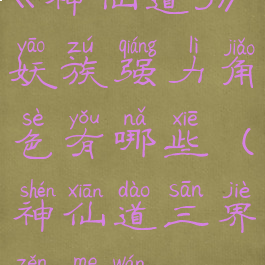 《神仙道3》
yāo zú qiáng lì jiǎo
妖族强力角
sè yǒu nǎ xiē
色有哪些（
shén xiān dào sān jiè
神仙道三界
zěn me wán